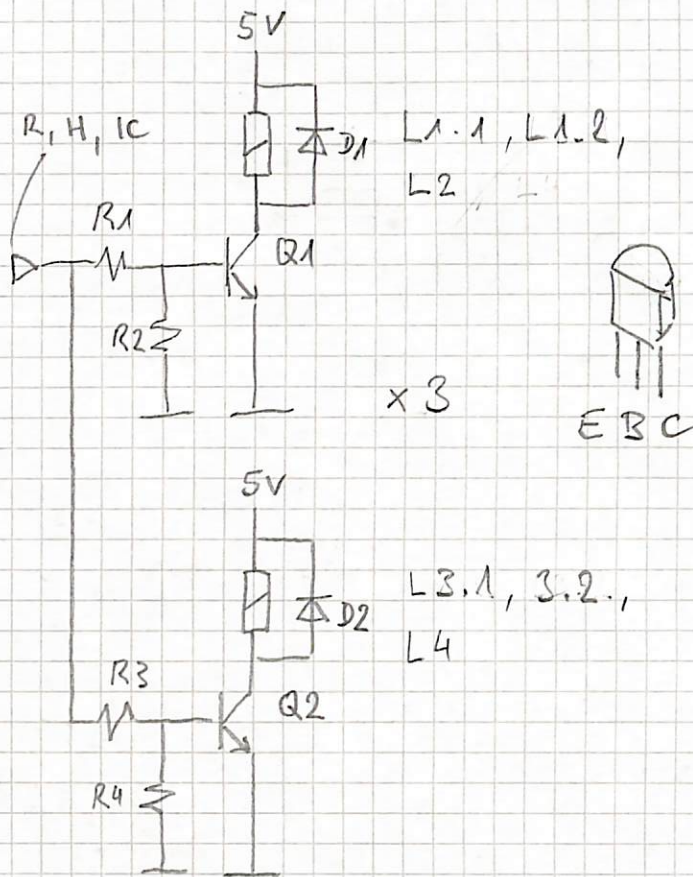 5V
R, H, IC
D1
L1.1, L1.2,
L2
R1
Q1
R2
x 3
E B C
5V
D2
L3.1, 3.2.,
L4
R3
Q2
R4